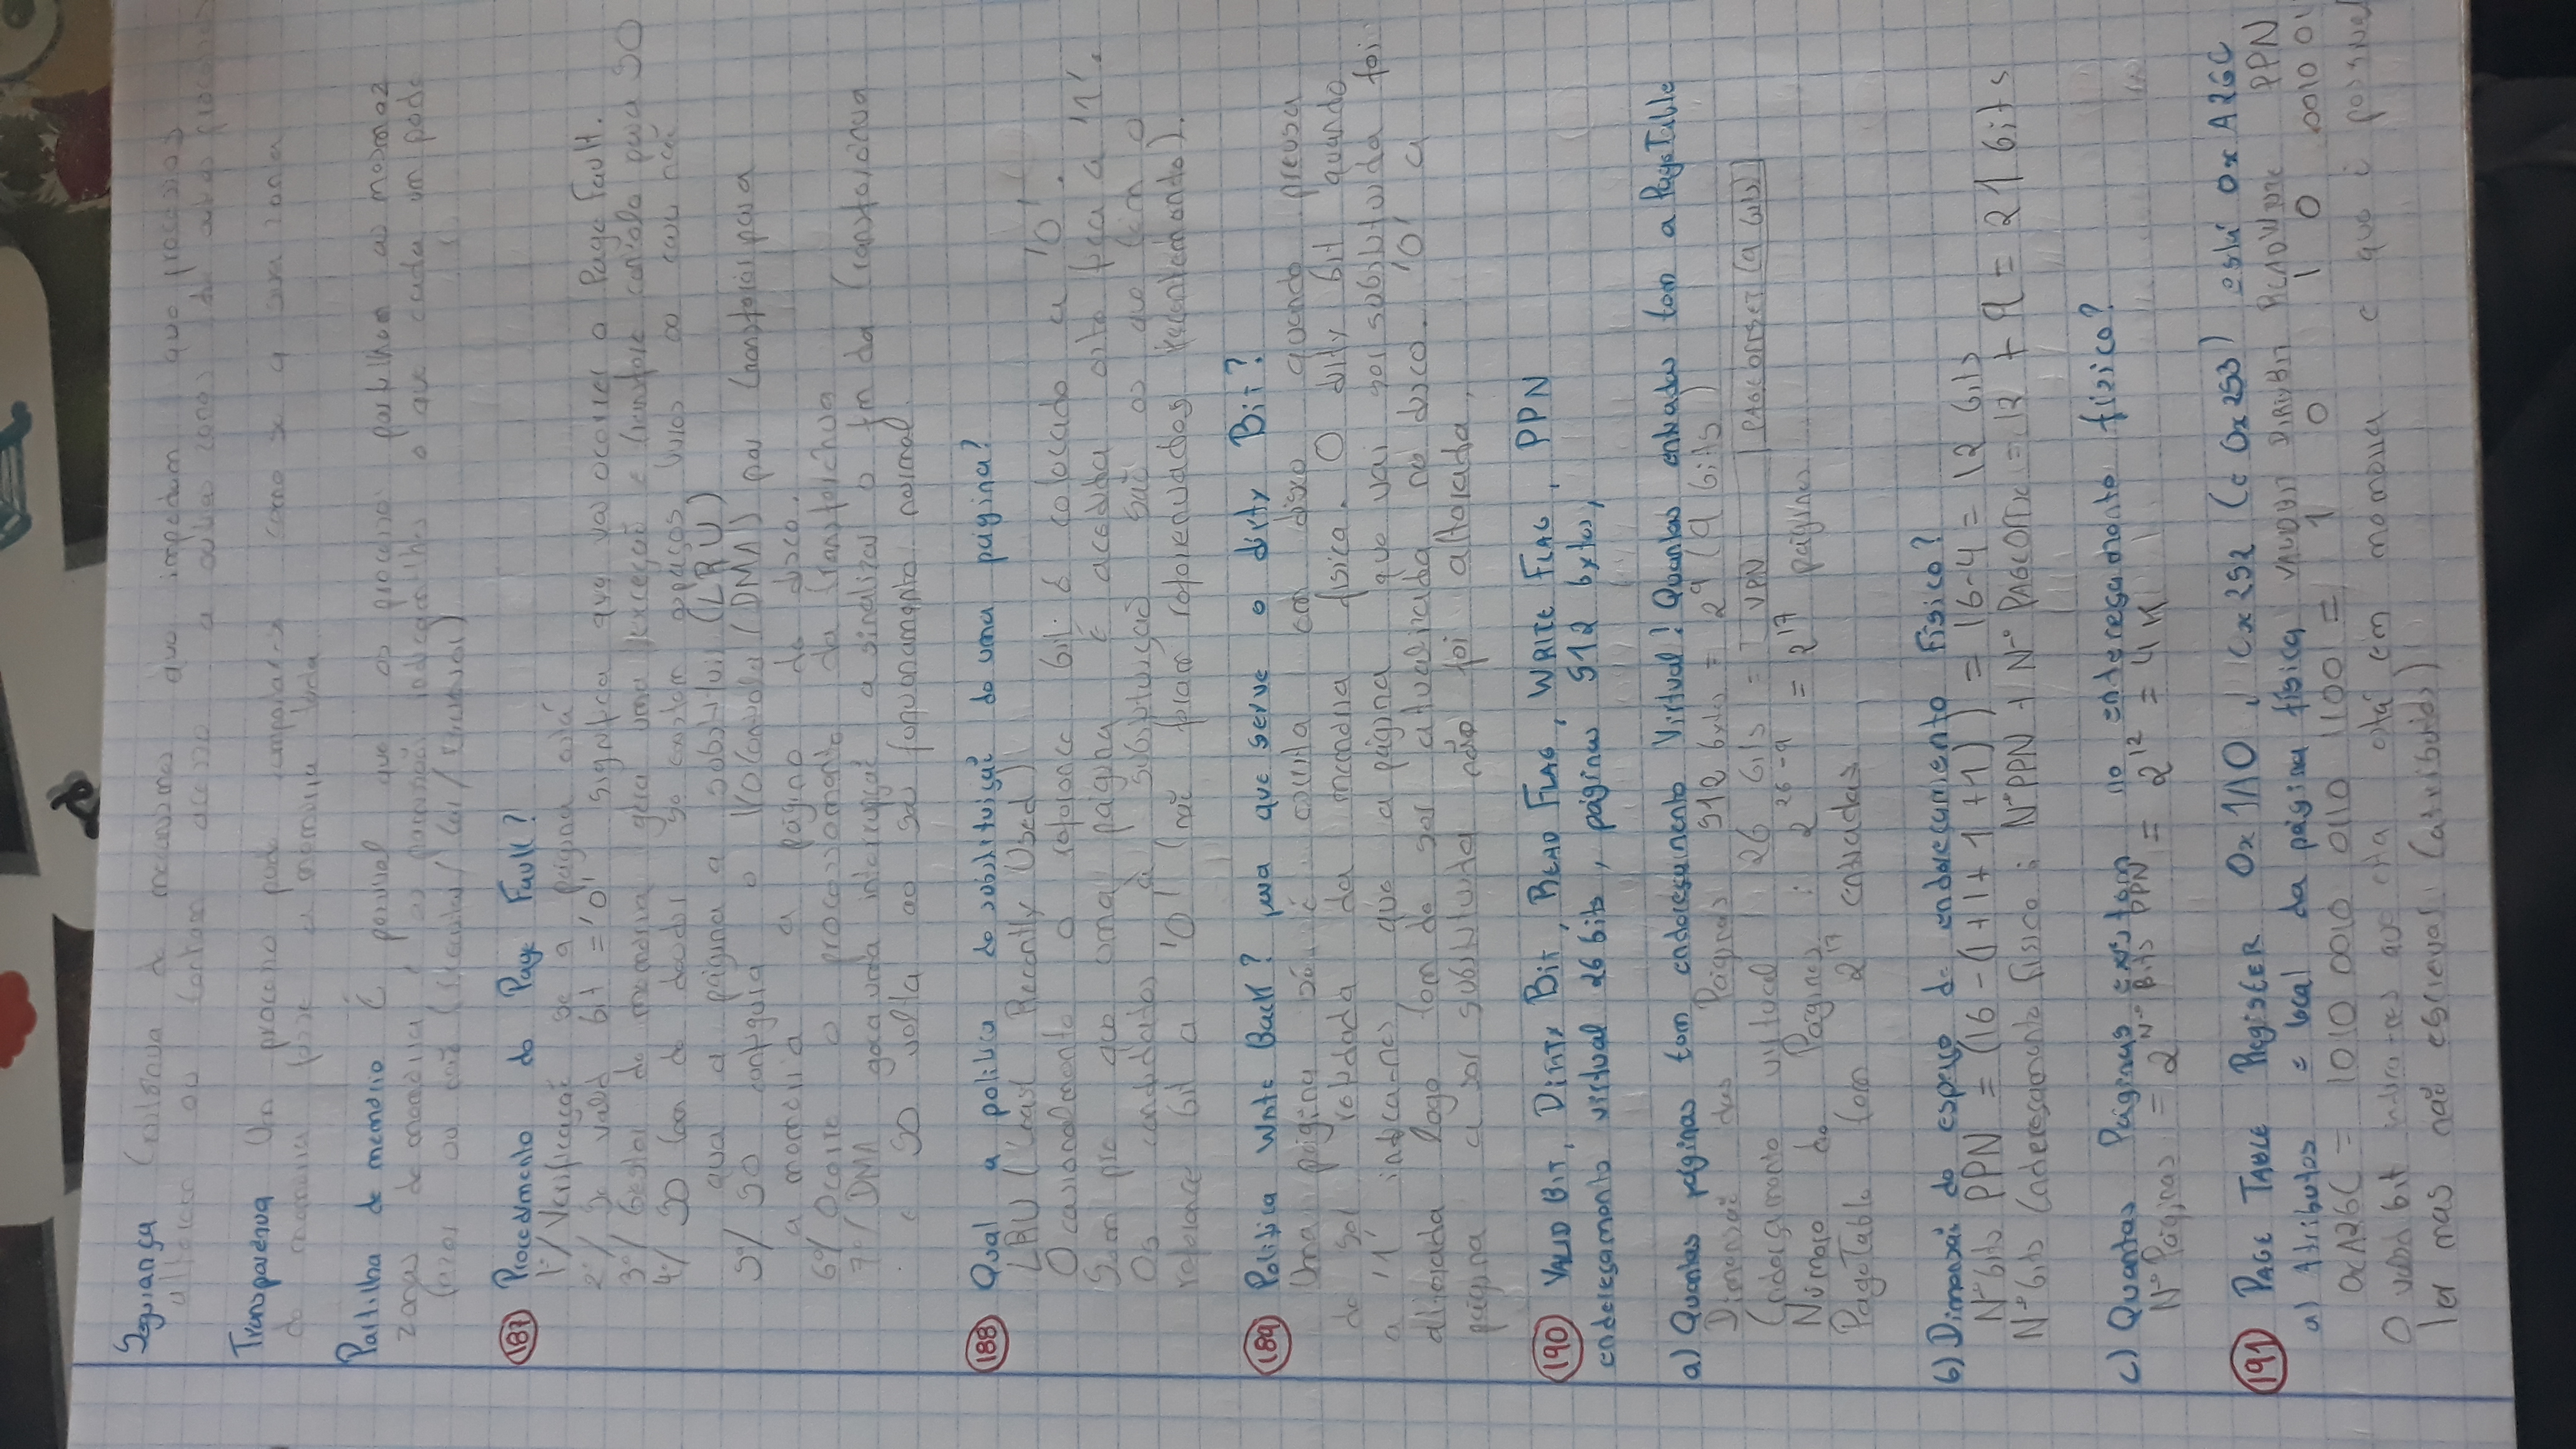 Segurança Existência de mecanismos que impedem que processos
alterem ou tenham acesso a outras zonas de outros processos
Transparência Um processo pode comportar-se como se a sua zona
de memória fosse a memória toda.
Partilha de memória É possível que os processos partilhem as mesmas
zonas de memória, as permissões indicam-lhes o que cada um pode
fazer ou não (Executar / Ler / Escrever)
187 Procedimento do Page Fault?
1º/ Verificação se a página está
2º/ Se valid bit = '0' significa que vai ocorrer o Page Fault.
3º/ Gestor de memória gera uma exceção e transfere controlo para SO
4º/ SO tem de decidir se existem espaços livres ou caso não
qual a página a substituir (LRU)
5º/ SO configura o I/O Controler (DMA) par transferir para
a memória a página do disco.
6º/ Ocorre o processamento da transferência
7º/ DMA gera uma interrupção a sinalizar o fim da transferência
e SO volta ao seu funcionamento normal.
188 Qual a politica de substituição de uma página?
LRU (Least Recently Used)
Ocasionalmente o reference bit é colocado a '0'.
Sempre que uma página é acedida este fica a '1'.
Os candidatos à substituição são os que têm o
reference bit a '0' (não foram referenciados recentemente).
189 Politica Write Back? para que serve o dirty Bit?
Uma página só é escrita em disco quando precisa
de ser retirada da memória física. O dirty bit quando
a '1' indica-nos que a página que vai ser substituida foi
alterada logo tem de ser atualizada no disco. '0' a
página a ser substituida não foi alterada,
190 VALID BIT, DIRTY BIT, READ FLAG, WRITE FLAG, PPN
endereçamento virtual 26 bits, páginas 512 bytes,
a) Quantas páginas tem endereçamento Virtual? Quantas entradas tem a PageTable
Dimensão das Páginas 512 bytes = 2⁹ (9 bits)
Endereçamento virtual 26 bits = VPN | PAGEOFFSET (9 bits)
Número de Páginas : 2²⁶⁻⁹ = 2¹⁷ páginas
PageTable tem 2¹⁷ entradas
b) Dimensão do espaço de endereçamento Físico?
Nº bits PPN = (16 - (1+1+1+1)) = 16-4 = 12 bits
Nº bits Endereçamento físico : Nº PPN + Nº = 12 + 9 = 21 bits
c) Quantas Páginas existem no endereçamento físico?
Nº Páginas = 2^Nº Bits PPN = 2¹² = 4K
191 PAGE TABLE REGISTER 0x1A0, 0x252 (e 0x253) está 0xA26C
a) Atributos e local da página física VALIDBIT DIRTYBIT READ WRITE PPN
0xA26C = 1010 0010 0110 1100 = 1 0 1 0 0010 01
O valid bit indica-nos que ela está em memória e que é possivel
ler mas não escrever (atributos)